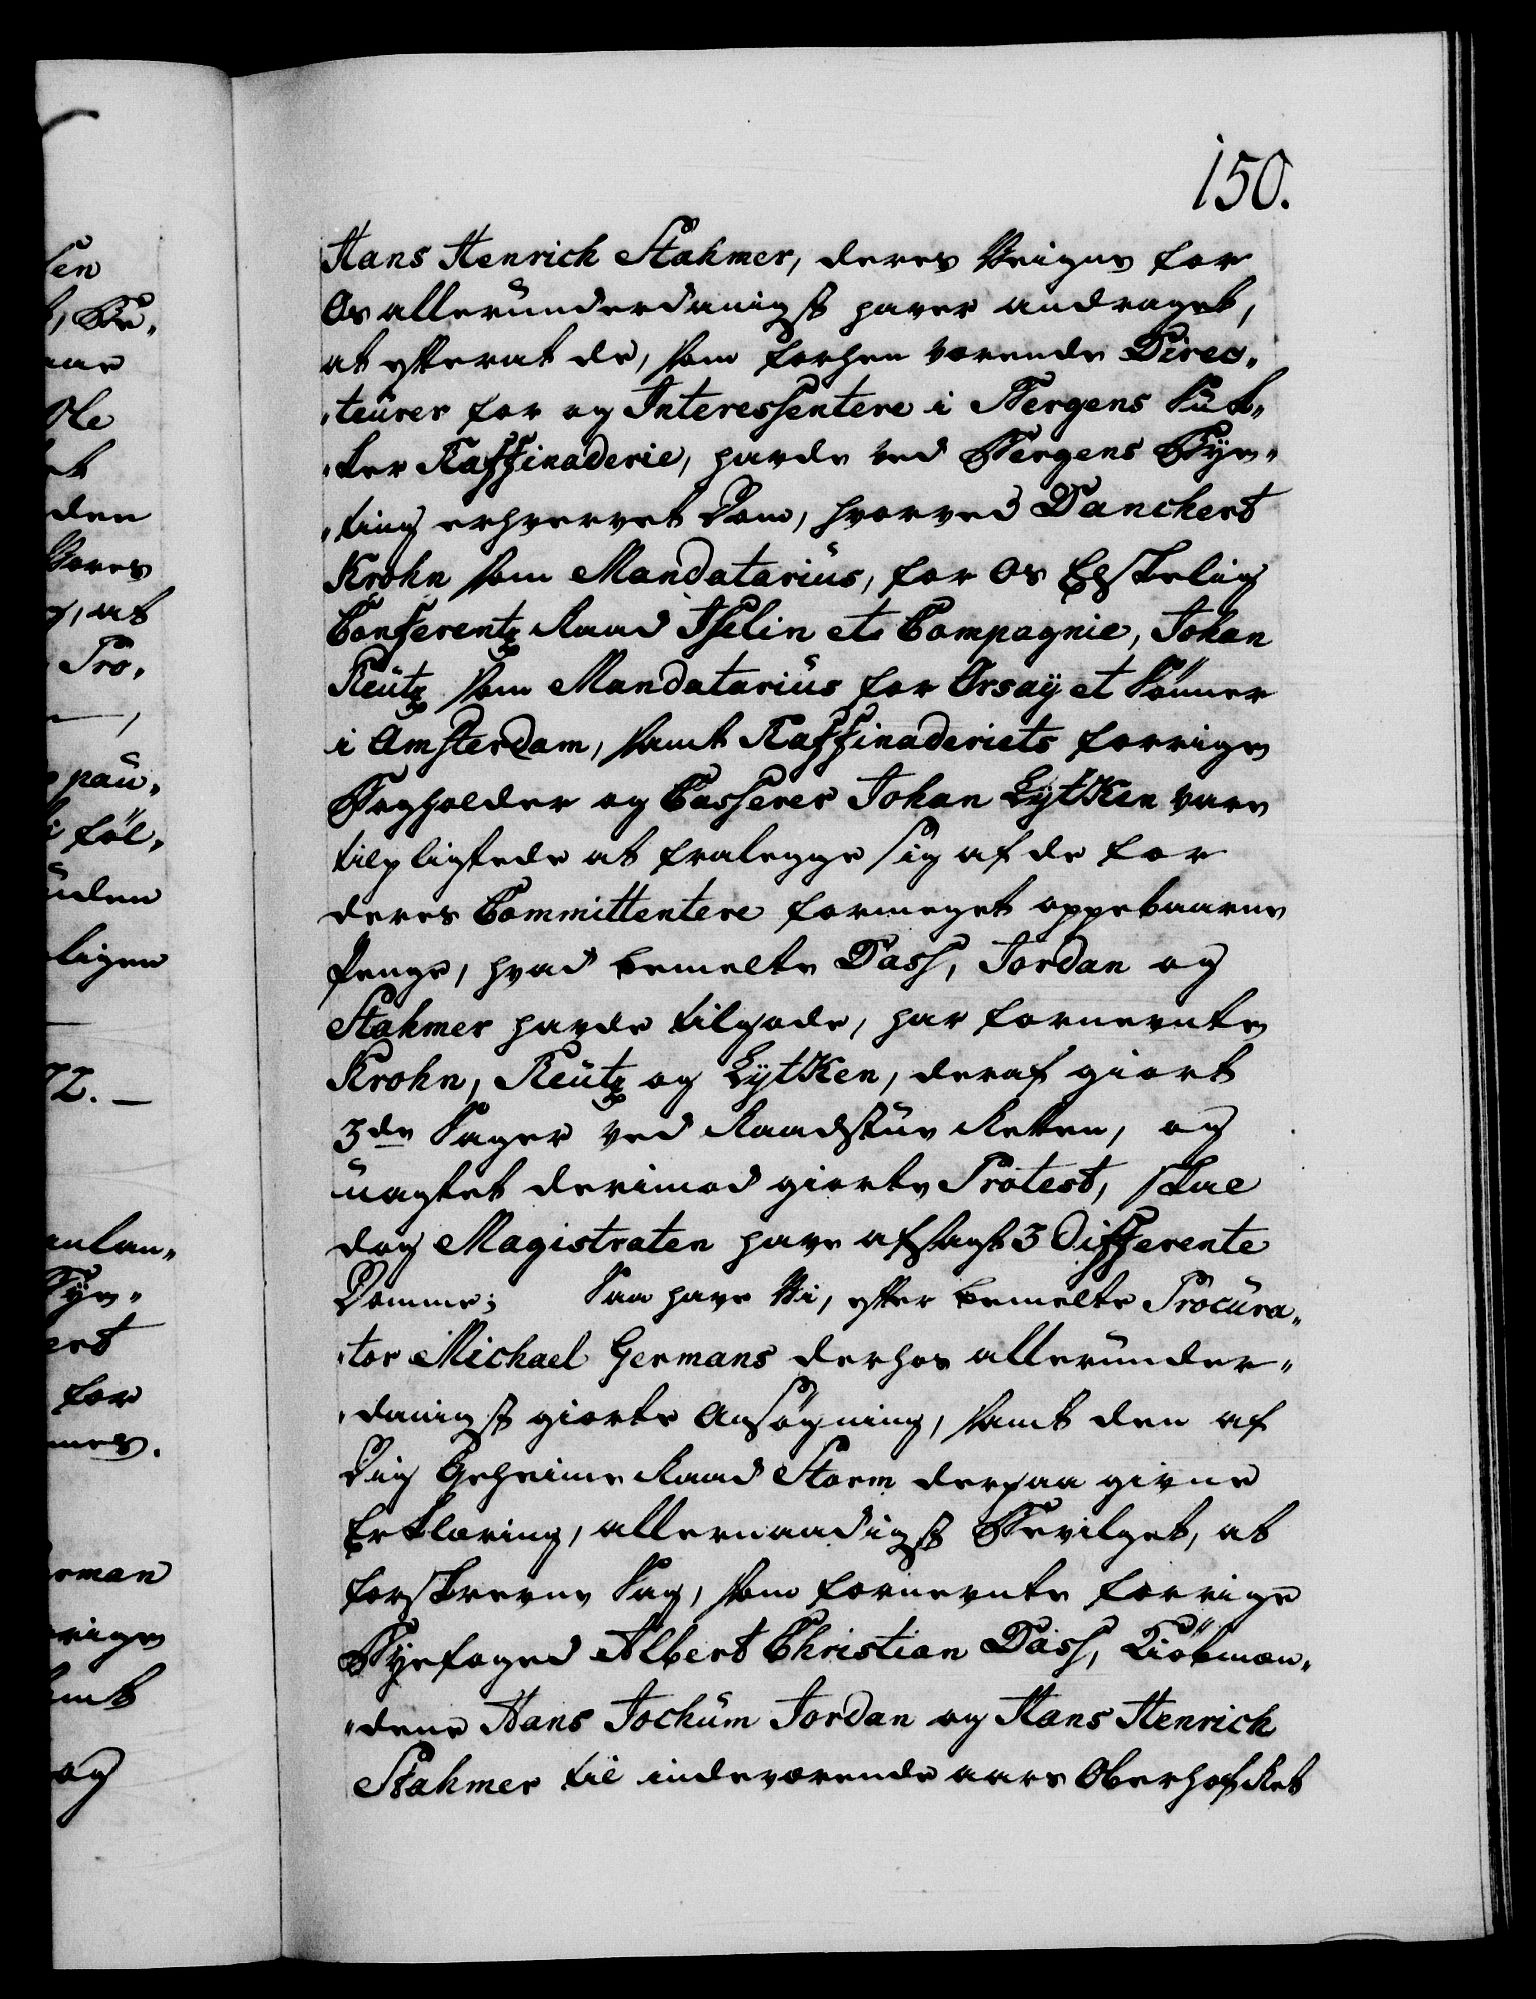 150.
Hans Henrich Stahmer, deres Veigne for
Os allerunderdanigst haver andraget,
at efterat de, som forhen værende Direc„
„teurer for og Interessentere i Bergens Suk„
„ker Raffinaderie, havde ved Bergens Bye„
„ting erhvervet Dom, hvorved Danckert
Krohn som Mandatarius, for Os Elskelig
Conferentz Raad Iselin et Compagnie, Johan
Reutz som Mandatarius for Orsaÿ et Sönner
i Amsterdam, samt Raffinaderiets forrige
Bogholder og Casserer Johan Lÿtken vare
tilpligtede at fralegge sig af de for
deres Committentere formeget oppebaarne
Penge, hvad bemelte Dass, Jordan og
Stahmer havde tilgode, har fornevnte
Krohn, Reutz og Lÿtken, deraf giort
3de Sager ved Raadstue Retten, og
uagtet derimod giorte Protest, skal
dog Magistraten have afsagt 3 Differente
Domme; Saa have Vi, efter bemelte Procura„
„tor Michael Germans derhos allerunder„
„danigst giorte Ansögning, samt den af
Dig Geheime Raad Storm derpaa givne
Erklæring, allernaadigst Bevilget, at
forskrevne Sag, som fornevnte forrige
Byefoged Albert Christian Dass, Kiöbmæn„
„dene Hans Jochum Jordan og Hans Henrich
Stahmer til indeværende aars Oberhof Ret